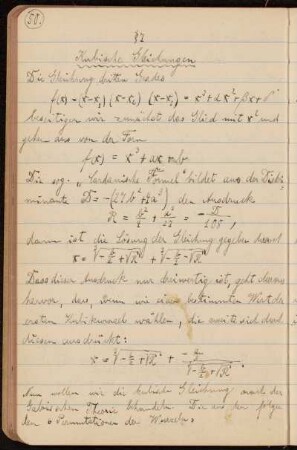 50.
§2
Kubische Gleichungen
Die Gleichung dritten Grades
f(x) = (x-x₁) (x-x₂) (x-x₃) = x³+αx²+βx+γ
beseitigen wir zunächst das Glied mit x² und
gehen aus von der Form
f(x) = x³ + ax + b
Die sog. „Cardanische Formel" bildet aus der Disk
minante D = -(27b²+4a³) den Ausdruck
R = b²/4 + a³/27 = -D/108,
dann ist die Lösung der Gleichung gegeben durch
x = ∛(-b/2+√R) + ∛(-b/2-√R)
Dass dieser Ausdruck nur dreiwertig ist, geht daraus
hervor, dass, wenn wir einen bestimmten Wert der
ersten Kubikwurzel wählen, die zweite sich durch
diesen ausdrückt:
x = ∛(-b/2+√R) + (-a/3)/∛(-b/2+√R).
Nun wollen wir die kubische Gleichung nach der
Galoisschen Theorie behandeln. Die aus der folgen
den 6 Permutationen der Wurzeln: